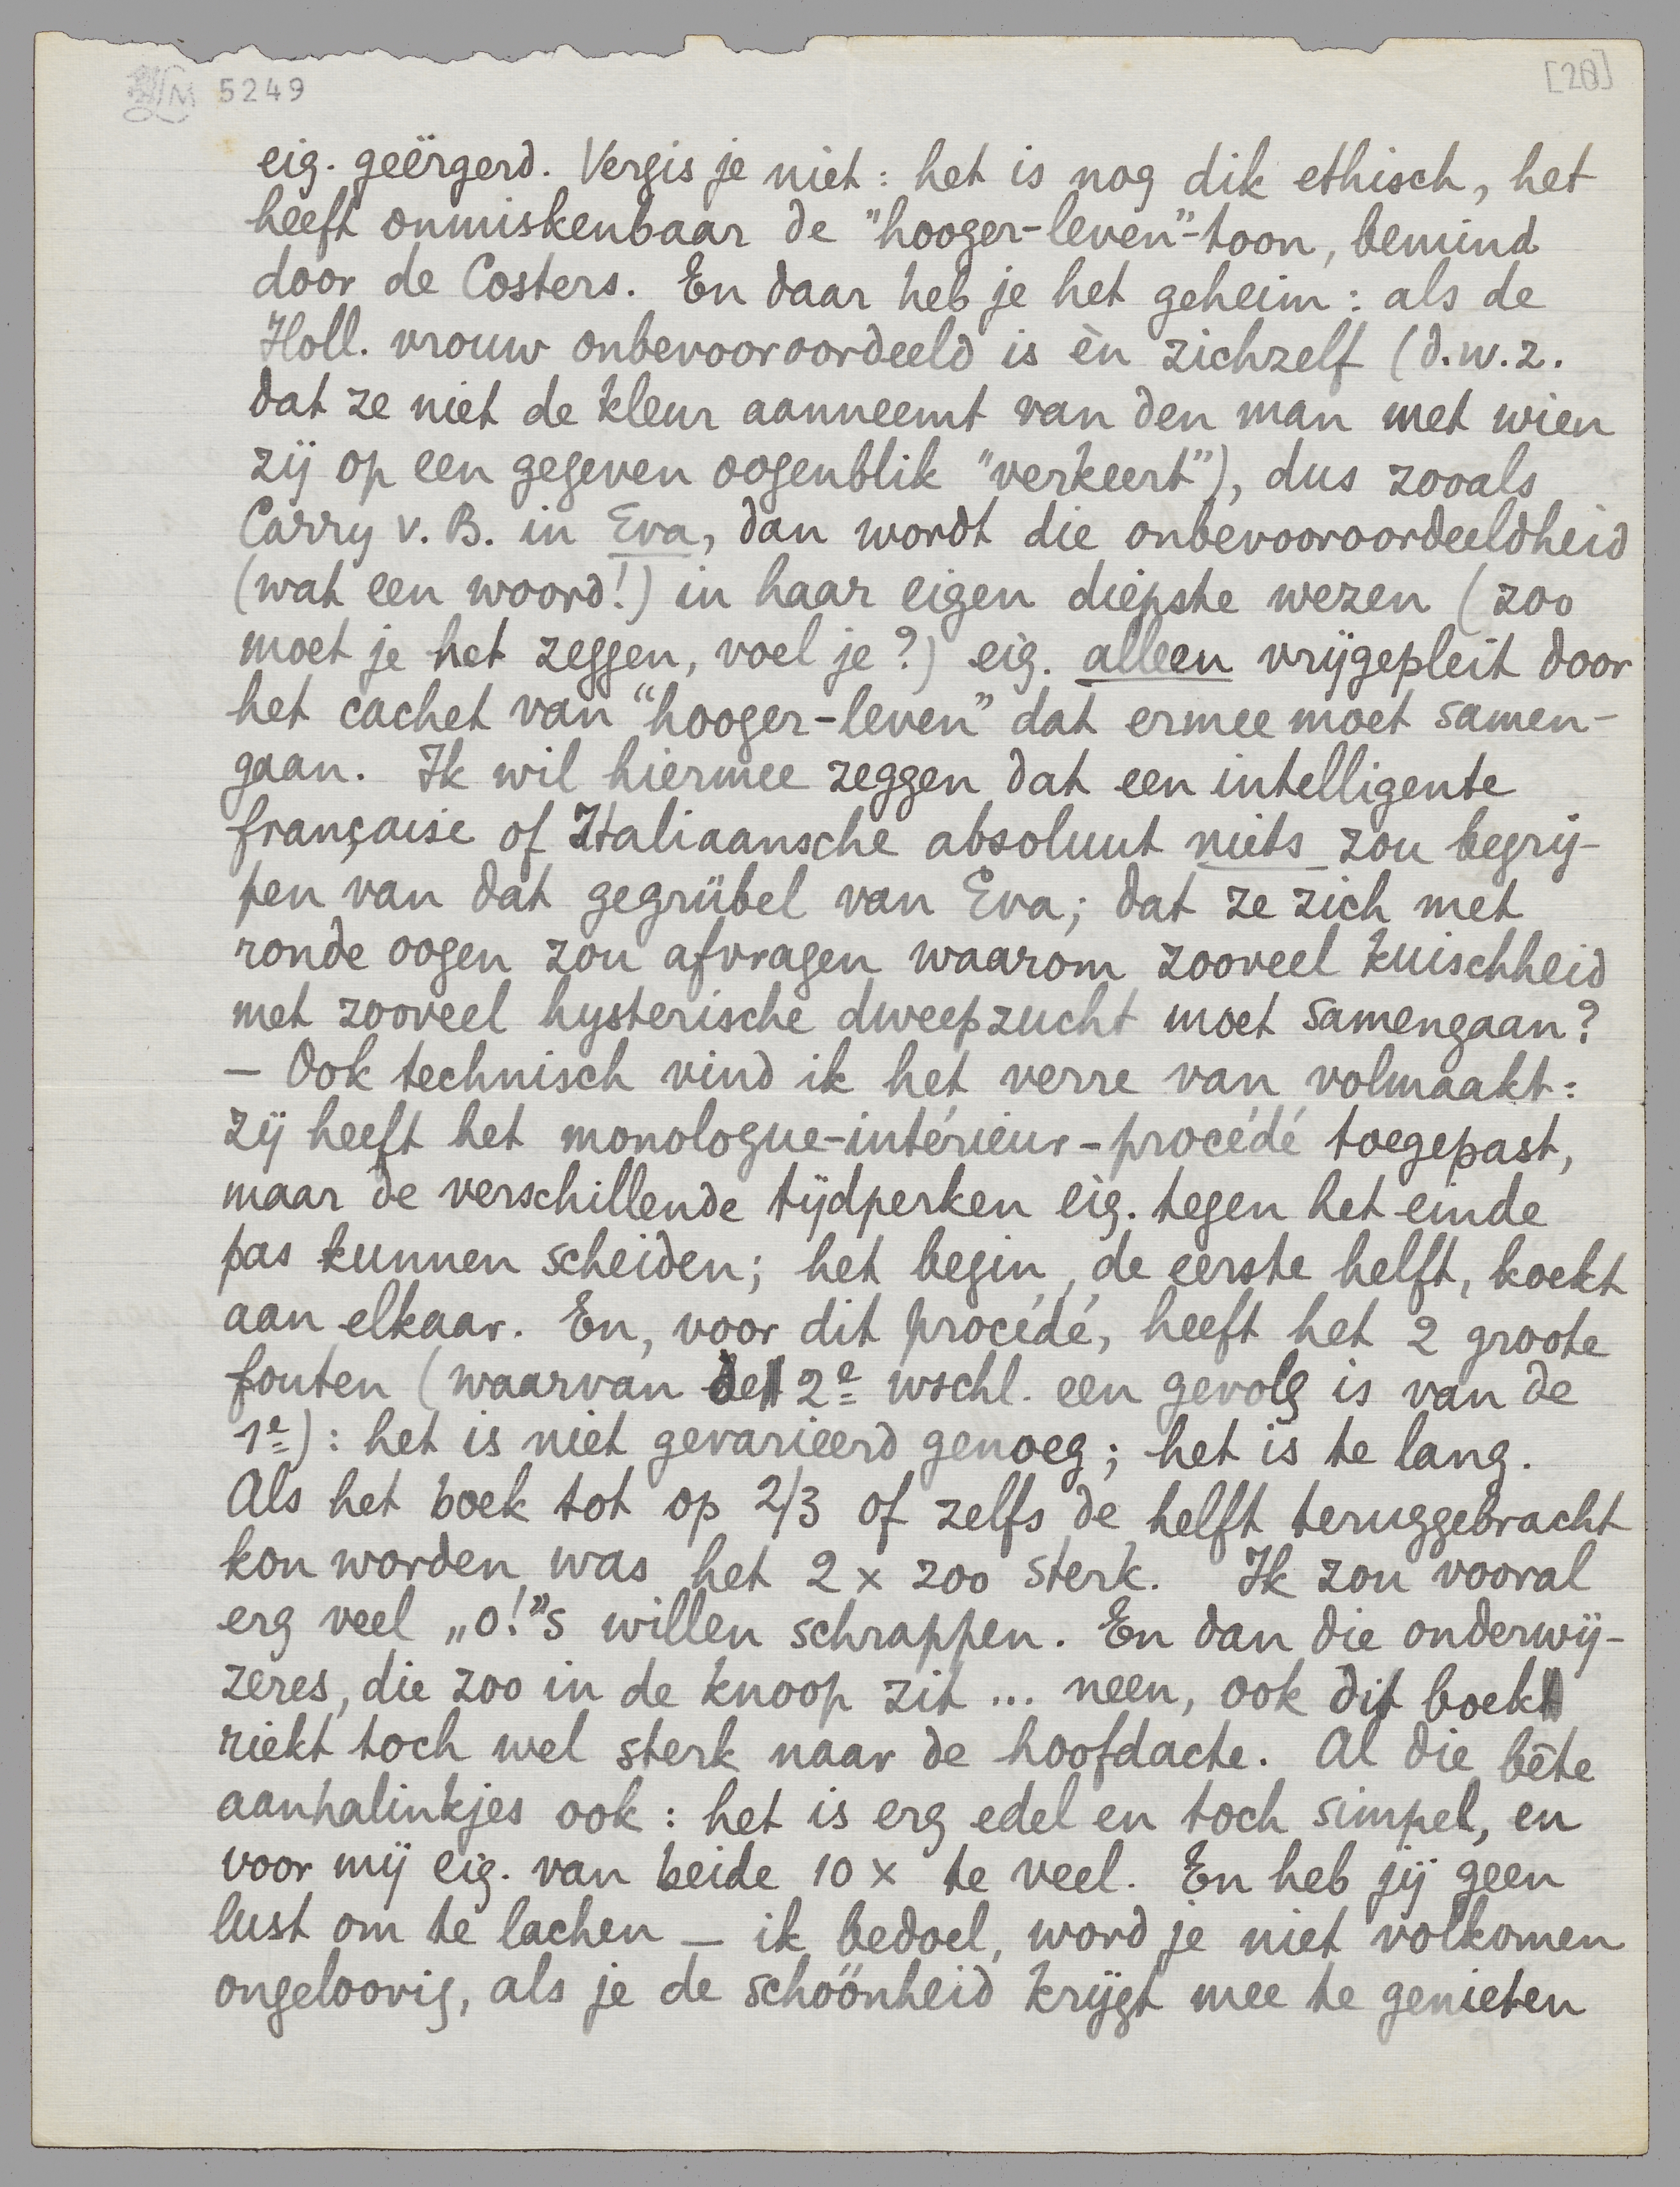 5249
[20]
eig. geërgerd. Vergis je niet: het is nog dik ethisch, het
heeft onmiskenbaar de "hooger-leven"-toon, bemind
door de Costers. En daar heb je het geheim: als de
Holl. vrouw onbevooroordeeld is èn zichzelf (d.w.z.
dat ze niet de kleur aanneemt van den man met wien
zij op een gegeven oogenblik "verkeert"), dus zooals
Carry v. B. in Eva, dan wordt die onbevooroordeeldheid
(wat een woord!) in haar eigen diepste wezen (zoo
moet je het zeggen, voel je?) eig. alleen vrijgepleit door
het cachet van "hooger-leven" dat ermee moet samen-
gaan. Ik wil hiermee zeggen dat een intelligente
française of Italiaansche absoluut niets zou begrij-
pen van dat gegrübel van Eva; dat ze zich met
ronde oogen zou afvragen waarom zooveel kuischheid
met zooveel hysterische dweepzucht moet samengaan?
— Ook technisch vind ik het verre van volmaakt:
zij heeft het monologue-intérieur-procédé toegepast,
maar de verschillende tijdperken eig. tegen het einde
pas kunnen scheiden; het begin, de eerste helft, koekt
aan elkaar. En, voor dit procédé, heeft het 2 groote
fouten (waarvan de 2e wschl. een gevolg is van de
1e): het is niet gevarieerd genoeg; het is te lang.
Als het boek tot op 2/3 of zelfs de helft teruggebracht
kon worden was het 2 x zoo sterk. Ik zou vooral
erg veel „o!"s willen schrappen. En dan die onderwij-
zeres, die zoo in de knoop zit ... neen, ook dit boek
riekt toch wel sterk naar de hoofdacte. Al die bête
aanhalinkjes ook: het is erg edel en toch simpel, en
voor mij eig. van beide 10 x te veel. En heb jij geen
lust om te lachen — ik bedoel, word je niet volkomen
ongeloovig, als je de schöönheid krijgt mee te genieten